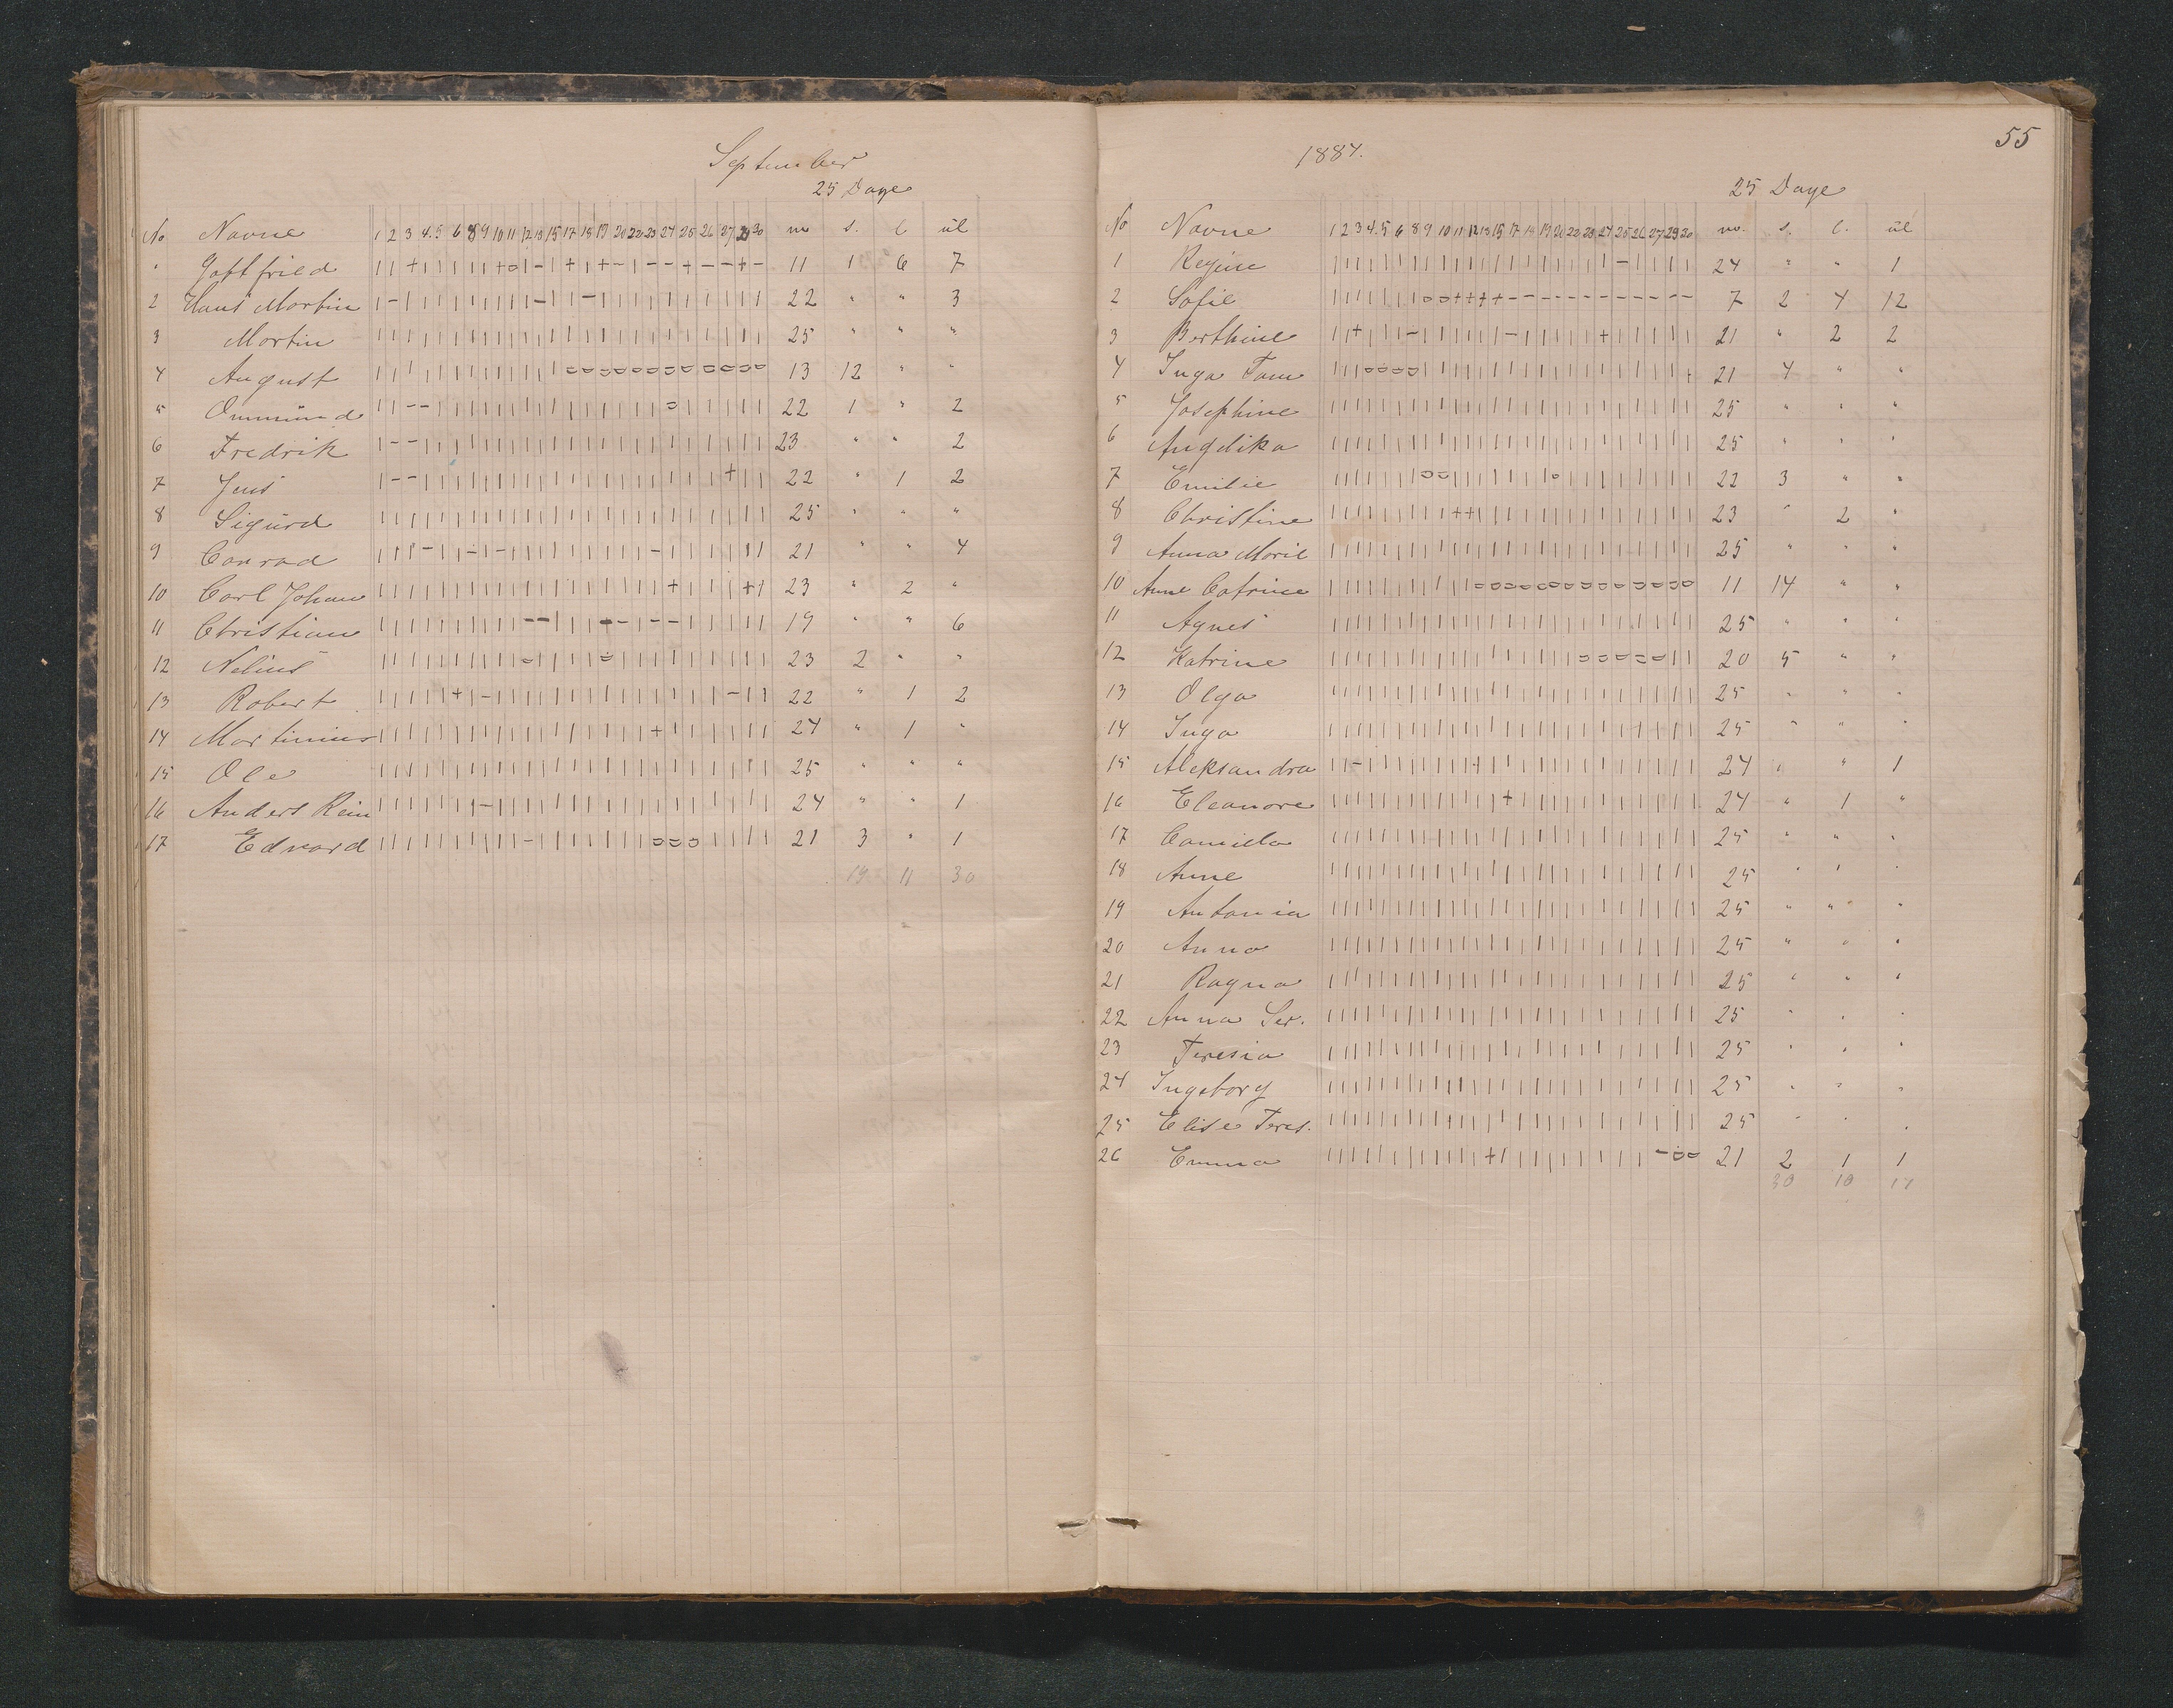 September
25 Dage
No Navne 1 2 3 4 5 6 8 9 10 11 12 13 15 17 18 19 20 22 23 24 25 26 27 29 30 m s. l ul
" Gottfried | | + | | | | | + o | - | + | + - | - - + - - + - 11 1 6 7
2 Hans Martin 22 " " 3
3 Martin 25 " " "
4 August 13 12 " "
5 Ommund 22 1 " 2
6 Fredrik 23 " " 2
7 Jens 22 " 1 2
8 Sigurd 25 " " "
9 Conrad 21 " " 4
10 Carl Johan 23 " 2 "
11 Christian 19 " " 6
12 Nelius 23 2 " "
13 Robert 22 " 1 2
14 Martinius 24 " 1 "
15 Ole 25 " " "
16 Anders Rein 24 " " 1
17 Edvard 21 3 " 1
19 11 30
55
1887.
25 Dage
No Navne 1 2 3 4 5 6 8 9 10 11 12 13 15 17 18 19 20 22 23 24 25 26 27 29 30 m. s. l. ul
1 Regine 24 " " 1
2 Sofie 7 2 4 12
3 Berthine 21 " 2 2
4 Inga Tom 21 4 " "
5 Josephine 25 " " "
6 Angelika 25 " " "
7 Emilie 22 3 " "
8 Christine 23 " 2 "
9 Anna Marie 25 " " "
10 Anne Catrine 11 14 " "
11 Agnes 25 " " "
12 Katrine 20 5 " "
13 Olga 25 " " "
14 Inga 25 " " "
15 Aleksandra 24 " " 1
16 Eleanore 24 " 1 "
17 Camilla 25 " " "
18 Anne 25 " " "
19 Antonia 25 " " "
20 Anna 25 " " "
21 Ragna 25 " " "
22 Anna Ser. 25 " " "
23 Teresia 25 " " "
24 Ingeborg 25 " " "
25 Elise Teres. 25 " " "
26 Emma 21 2 1 1
30 10 17